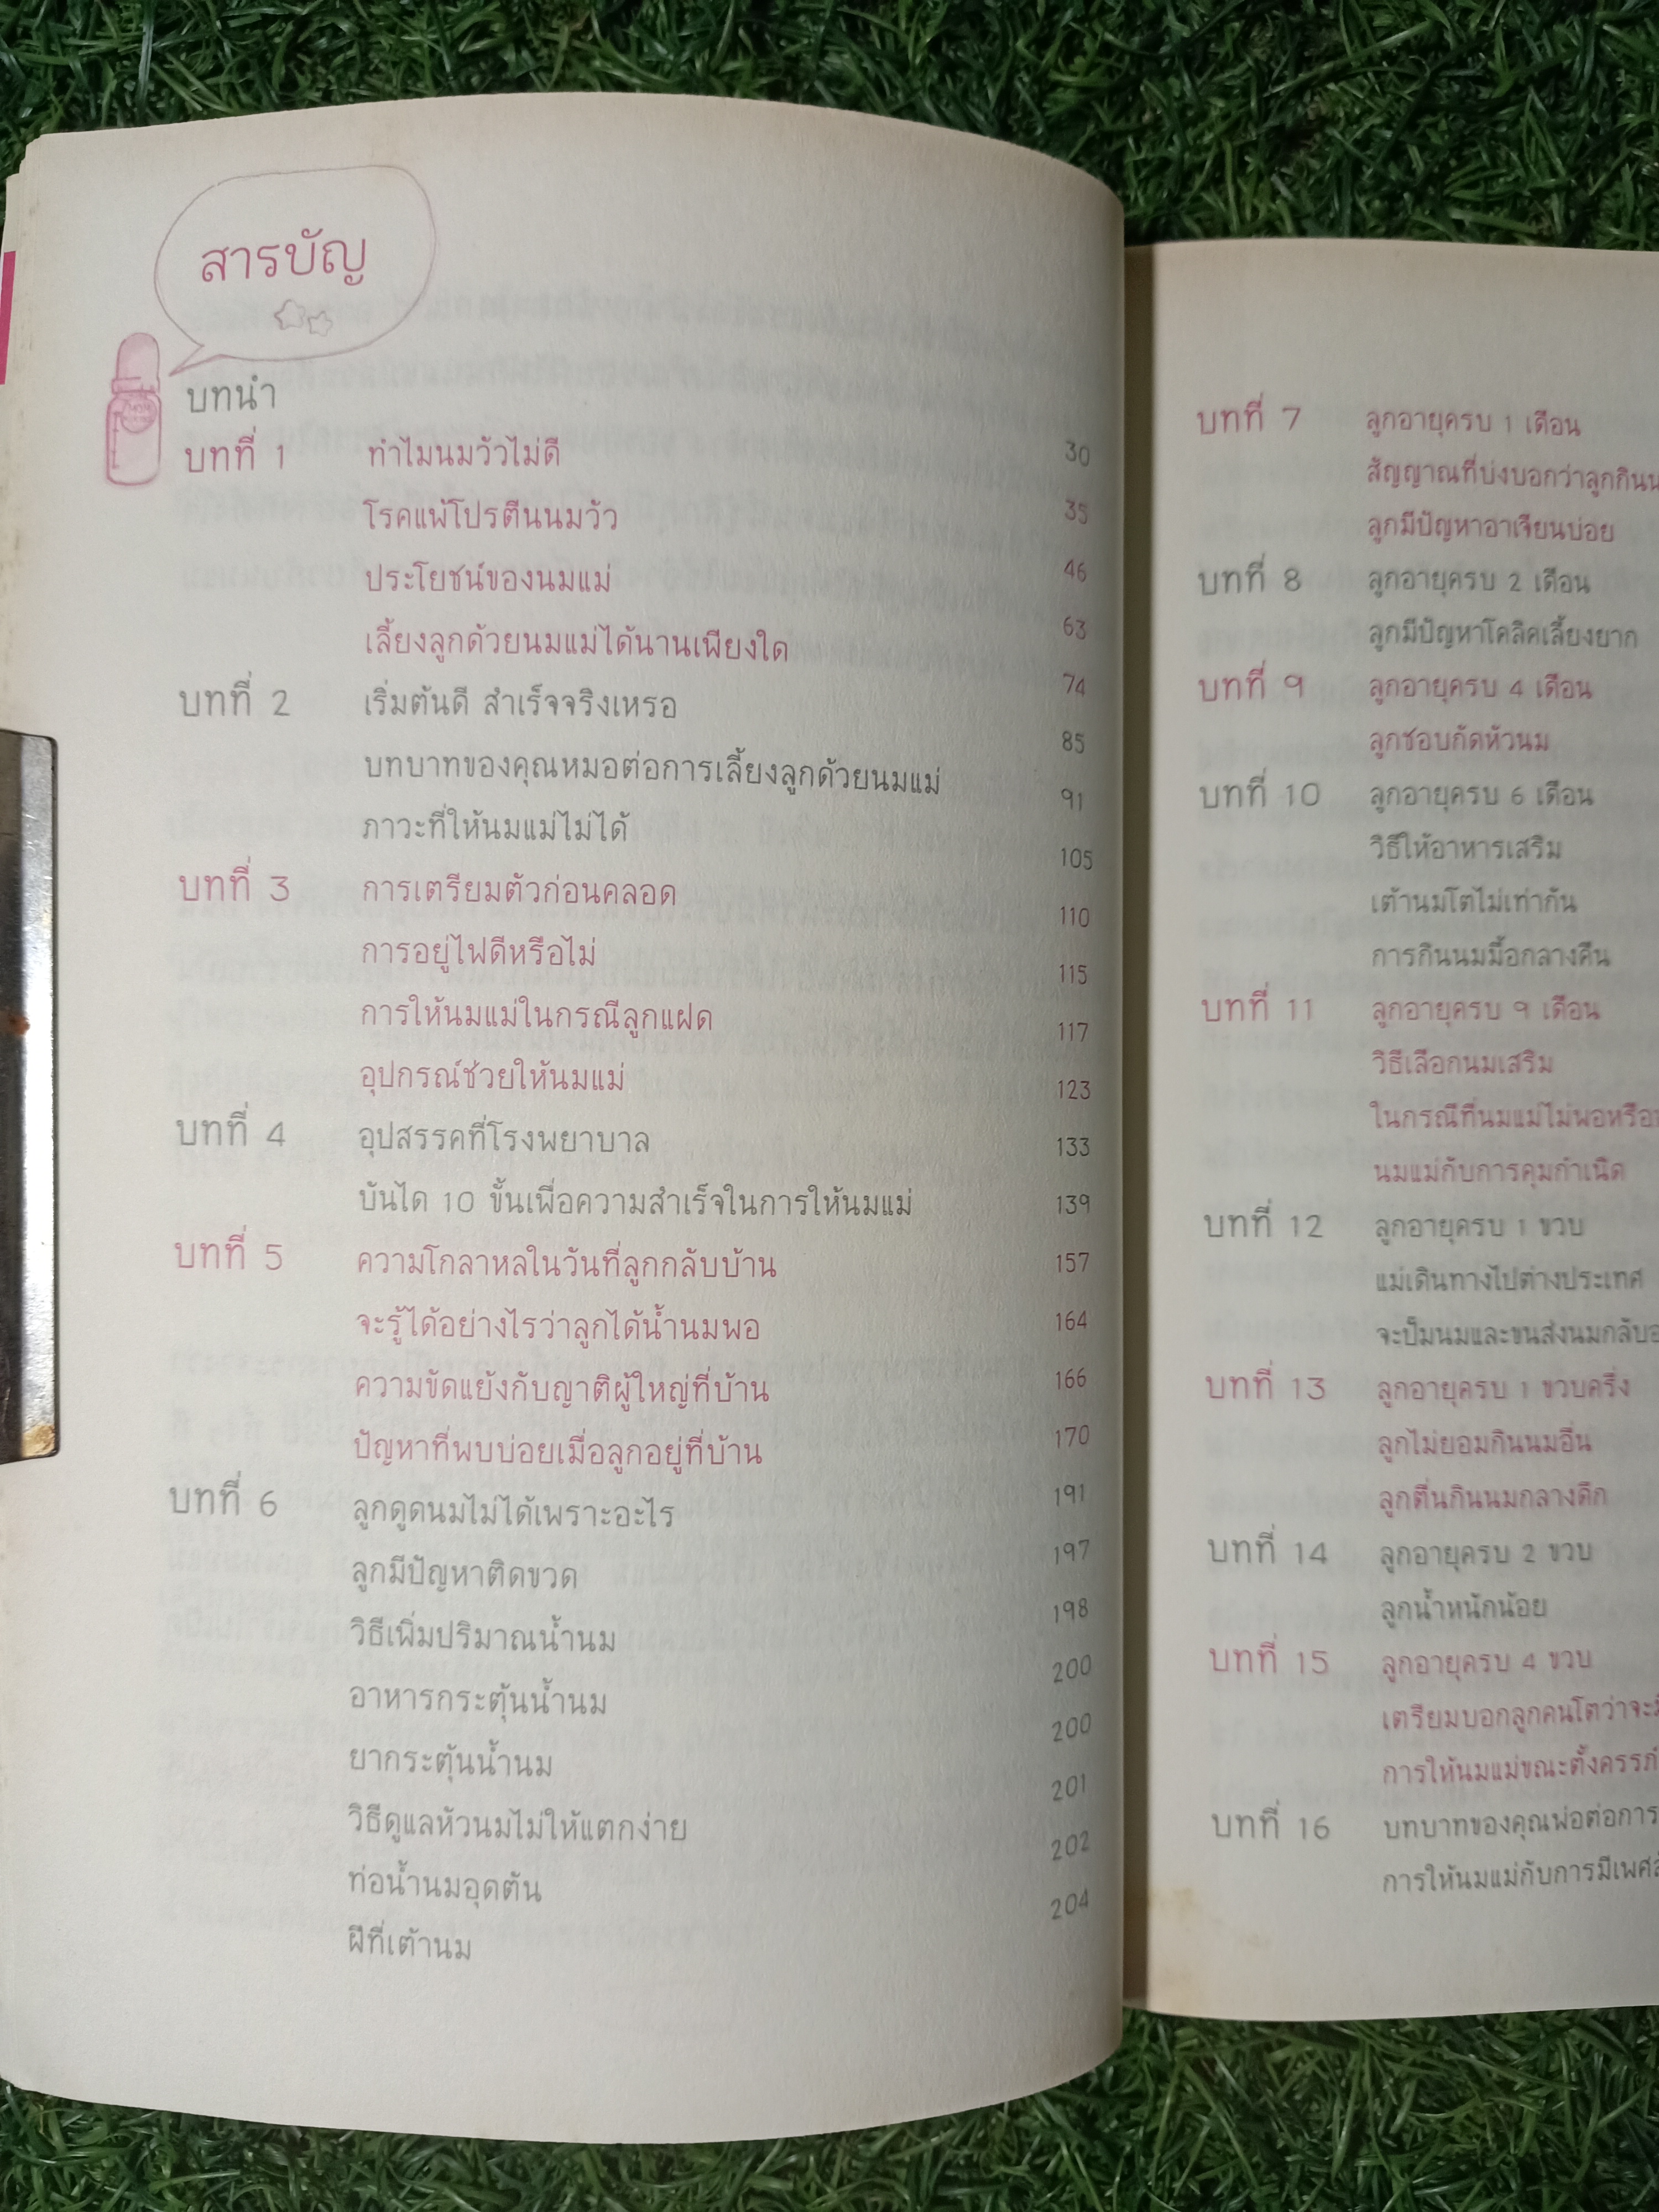 สารบัญ
บทนำ 30
บทที่ 1 ทำไมนมวัวไม่ดี 35
โรคแพ้โปรตีนนมวัว 46
ประโยชน์ของนมแม่ 63
เลี้ยงลูกด้วยนมแม่ได้นานเพียงใด 74
บทที่ 2 เริ่มต้นดี สำเร็จจริงเหรอ 85
บทบาทของคุณหมอต่อการเลี้ยงลูกด้วยนมแม่ 91
ภาวะที่ให้นมแม่ไม่ได้ 105
บทที่ 3 การเตรียมตัวก่อนคลอด 110
การอยู่ไฟดีหรือไม่ 115
การให้นมแม่ในกรณีลูกแฝด 117
อุปกรณ์ช่วยให้นมแม่ 123
บทที่ 4 อุปสรรคที่โรงพยาบาล 133
บันได 10 ขั้นเพื่อความสำเร็จในการให้นมแม่ 139
บทที่ 5 ความโกลาหลในวันที่ลูกกลับบ้าน 157
จะรู้ได้อย่างไรว่าลูกได้น้ำนมพอ 164
ความขัดแย้งกับญาติผู้ใหญ่ที่บ้าน 166
ปัญหาที่พบบ่อยเมื่อลูกอยู่ที่บ้าน 170
บทที่ 6 ลูกดูดนมไม่ได้เพราะอะไร 191
ลูกมีปัญหาติดขวด 197
วิธีเพิ่มปริมาณน้ำนม 198
อาหารกระตุ้นน้ำนม 200
ยากระตุ้นน้ำนม 200
วิธีดูแลหัวนมไม่ให้แตกง่าย 201
ท่อน้ำนมอุดตัน 202
ฝีที่เต้านม 204
บทที่ 7 ลูกอายุครบ 1 เดือน
สัญญาณที่บ่งบอกว่าลูกกินน
ลูกมีปัญหาอาเจียนบ่อย
บทที่ 8 ลูกอายุครบ 2 เดือน
ลูกมีปัญหาโคลิคเลี้ยงยาก
บทที่ 9 ลูกอายุครบ 4 เดือน
ลูกชอบกัดหัวนม
บทที่ 10 ลูกอายุครบ 6 เดือน
วิธีให้อาหารเสริม
เต้านมโตไม่เท่ากัน
การกินนมมื้อกลางคืน
บทที่ 11 ลูกอายุครบ 9 เดือน
วิธีเลือกนมเสริม
ในกรณีที่นมแม่ไม่พอหรือ
นมแม่กับการคุมกำเนิด
บทที่ 12 ลูกอายุครบ 1 ขวบ
แม่เดินทางไปต่างประเทศ
จะปั๊มนมและขนส่งนมกลับ
บทที่ 13 ลูกอายุครบ 1 ขวบครึ่ง
ลูกไม่ยอมกินนมอื่น
ลูกตื่นกินนมกลางดึก
บทที่ 14 ลูกอายุครบ 2 ขวบ
ลูกน้ำหนักน้อย
บทที่ 15 ลูกอายุครบ 4 ขวบ
เตรียมบอกลูกคนโตว่าจะ
การให้นมแม่ขณะตั้งครรภ์
บทที่ 16 บทบาทของคุณพ่อต่อการ
การให้นมแม่กับการมีเพศ